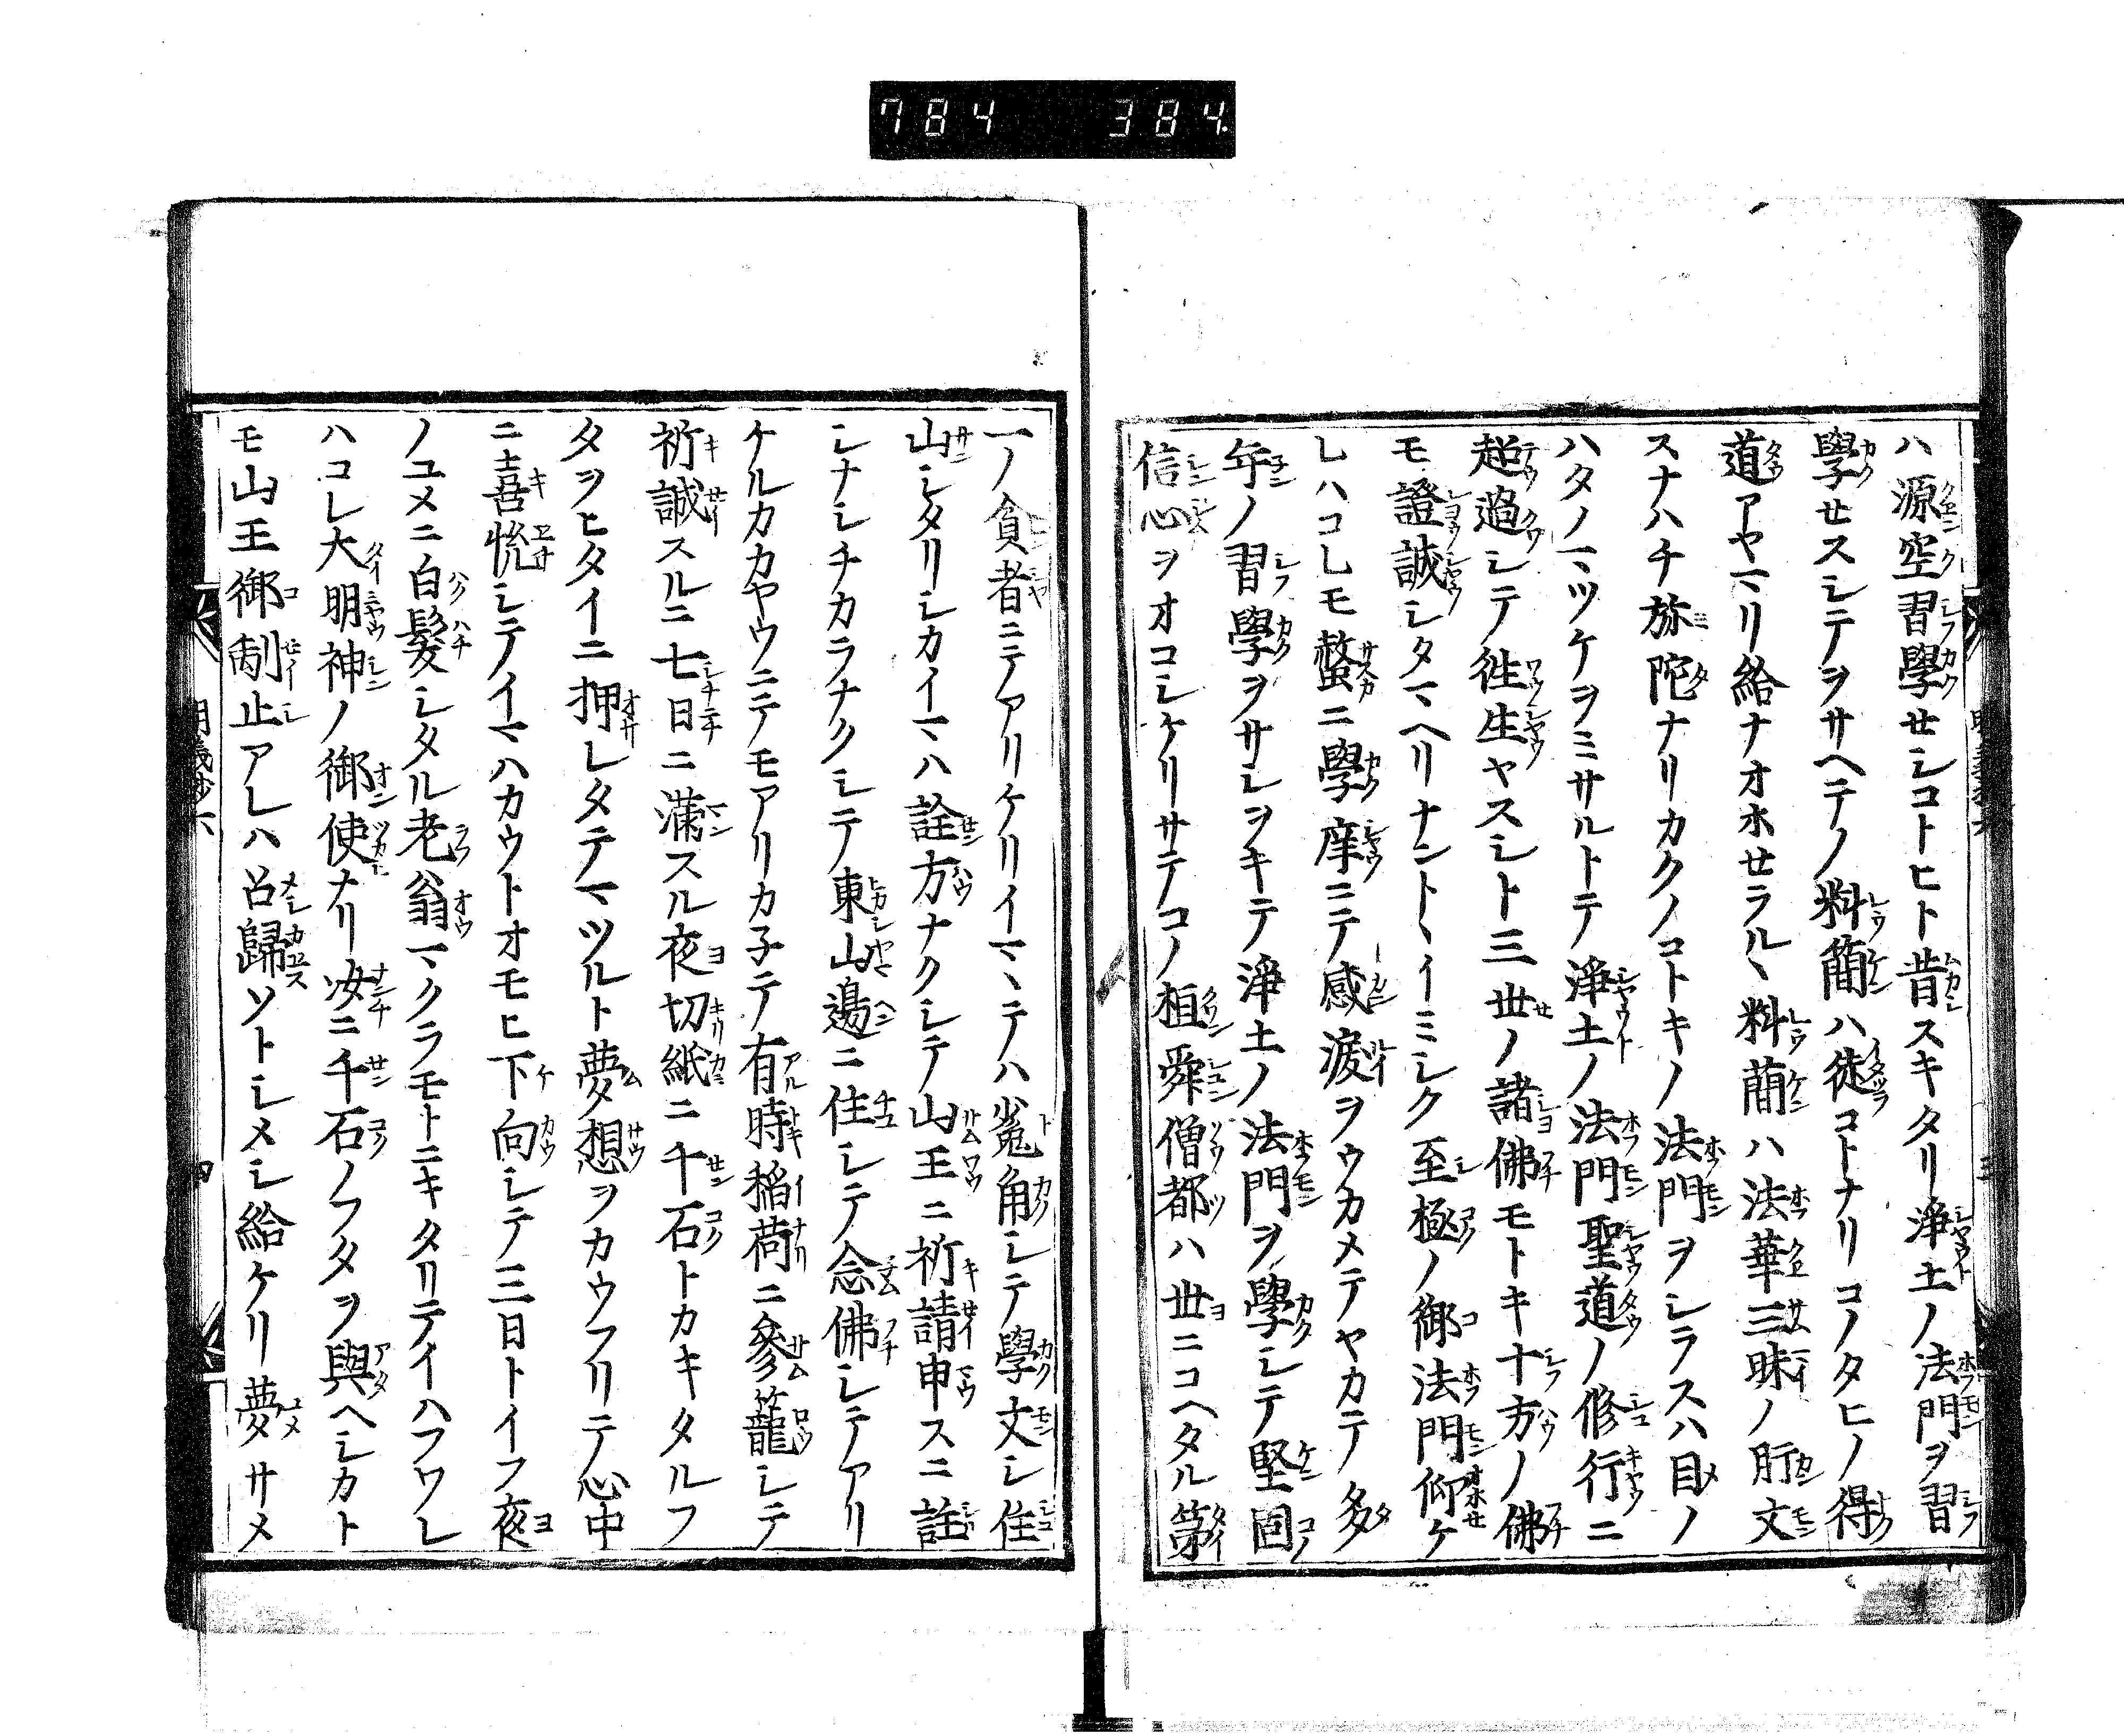 784 384.
ハ源空習學せシコトヒト昔スキタリ淨土ノ法門ヲ習
學せスシテヲサヘテノ料簡ハ徒コトナリコノタヒノ得
道アヤマリ給ナオホせラルヽ料簡ハ法華三昧ノ肝文
スナハチ弥陀ナリカクノコトキノ法門ヲシラスハ目ノ
ハタノマツケヲミサルトテ淨土ノ法門聖道ノ修行ニ
超過シテ徃生ヤスシト三世ノ諸佛モトキ十方ノ佛
モ證誠シタマヘリナントイミシク至極ノ御法門仰ケ
レハコレモ螯ニ學庠ニテ感淚ヲウカメテヤカテ多
年ノ習學ヲサシヲキテ淨土ノ法門ヲ學シテ堅固ノ
信心ヲオコシケリサテコノ桓舜僧都ハ世ニコヘタル第
一ノ貧者ニテアリケリイマヽテハ嵬角シテ學文シ住
山シタリシカイマハ詮方ナクシテ山王ニ祈請申スニ詮
シナシチカラナクシテ東山邊ニ住シテ念佛シテアリ
ケルカカヤウニテモアリカ子テ有時稲荷ニ參籠シテ
祈誠スルニ七日ニ滿スル夜切紙ニ千石トカキタルフ
タヲヒタイニ押レタテマツルト夢想ヲカウフリテ心中
ニ喜恱シテイマハカウトオモヒ下向シテ三日トイフ夜
ノユメニ白髮シタル老翁マクラモトニキタリテイハフワレ
ハコレ大明神ノ御使ナリ汝ニ千石ノフタヲ與ヘシカト
モ山王御制止アレハ召歸ソトシメシ給ケリ夢サメ
明義抄六
四